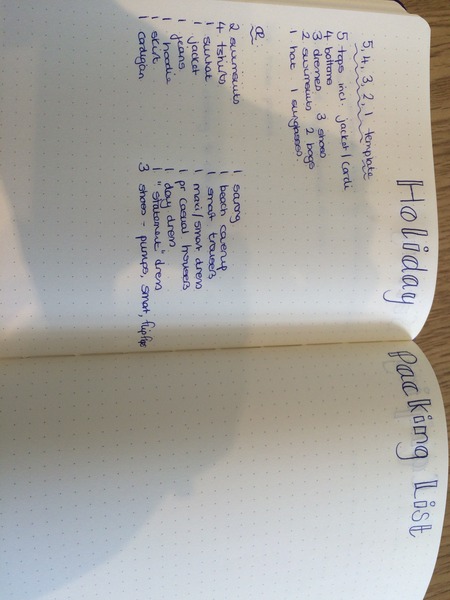 Holiday Packing List
5, 4, 3, 2, 1 template
5 tops incl. jacket / cardi
4 bottoms 3 shoes
3 dresses 2 bags
2 swimsuits 1 sunglasses.
1 hat
OR:
2 swimsuits
4 tshirts
1 sunhat
1 jacket
1 jeans
1 hoodie
1 skirt
1 cardigan
1 sarong
1 beach coverup
1 smart trousers
1 maxi/smart dress
1 pr casual trousers
1 day dress
1 "statement" dress
3 shoes = pumps, smart, flipflops